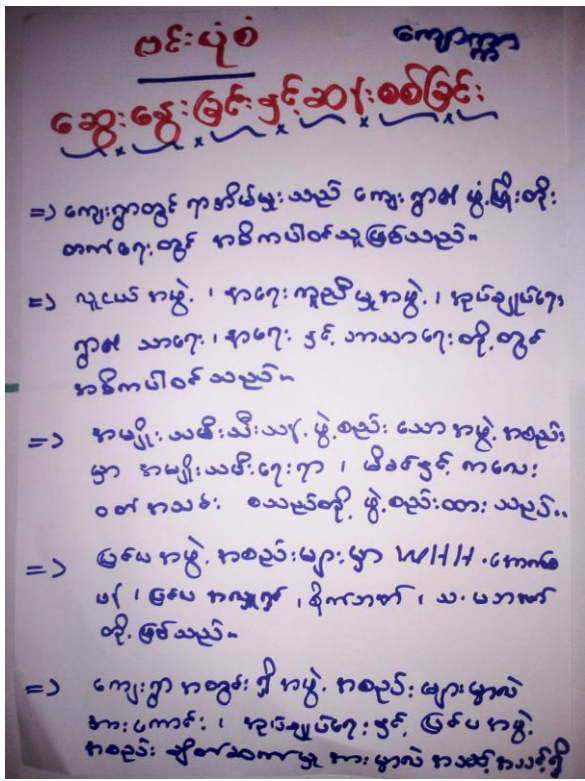 ဗင်းပုံစံ
ကျောက္ကာ
ဆွေးနွေးခြင်းနှင့်ဆန်းစစ်ခြင်း
=> ကျေးရွာတွင် ရာအိမ်မှူးသည် ကျေးရွာ၏ ဖွံ့ဖြိုးတိုး
တက်ရေးတွင် အဓိကပါဝင်သူဖြစ်သည်။
=> လူငယ်အဖွဲ့၊ နာရေးကူညီမှုအဖွဲ့၊ အုပ်ချုပ်ရေး
ရွာ၏ သာရေး၊ နာရေး နှင့် ဘာသာရေးတို့တွင်
အဓိကပါဝင်သည်။
=> အမျိုးသမီးသီးသန့်ဖွဲ့စည်းသောအဖွဲ့အစည်း
မှာ အမျိုးသမီးရေးရာ၊ မိခင်နှင့် ကလေး
ဝတ်အသင်း စသည်တို့ ဖွဲ့စည်းထားသည်။
=> ပြင်ပအဖွဲ့အစည်းများမှာ WHH
ပြင်ပအလှူရှင်၊ စိုက်ဘဏ်၊ သ.မဘဏ်
တို့ဖြစ်သည်။
=> ကျေးရွာအတွင်းရှိအဖွဲ့အစည်းများမှာလဲ
အားကောင်း၊ အုပ်ချုပ်ရေးနှင့် ပြင်ပအဖွဲ့
အစည်းချိတ်ဆက်မှုအားမှာလဲ အသင့်အသင့်ရှိ